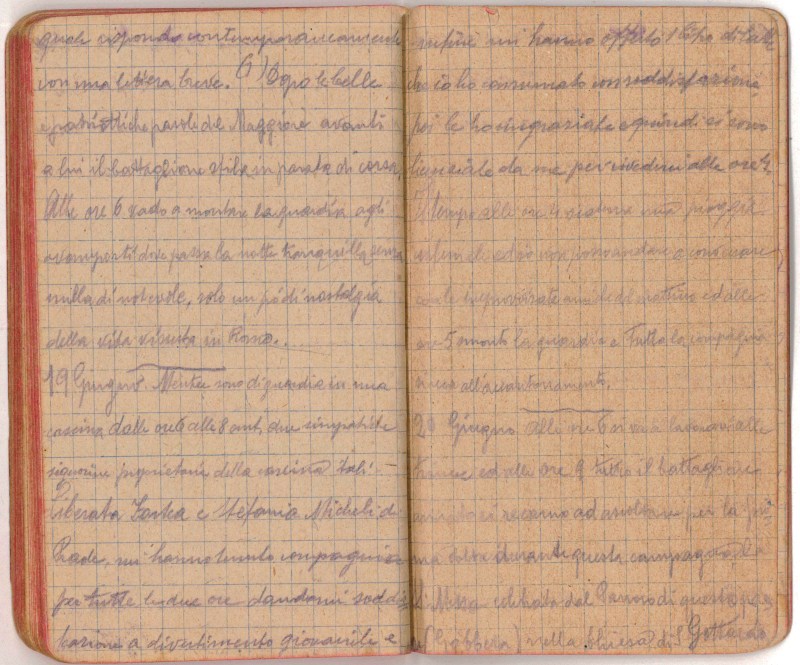 quale rispondo contemporaneamente
con una lettera breve. 6) Dopo le belle
e patriottiche parole del Maggiore avanti
a lui il battaglione sfila in parata di corsa.
Alle ore 6 vado a montare la guardia agli
avamposti dove passo la notte tranquilla senza
nulla di notevole, solo un pò di nostalgia
della vita vissuta in
19 Giugno. Mentre sono di guardia in una
cascina dalle ore 6 alle 8 ant. due simpatiche
signorine proprietarie della cascina
Liberata e Stefania Micheli di
mi hanno tenuto compagnia
per tutte le due ore dandomi soddi
sfazione e divertimento giovanile e
infine mi hanno offerto 1 litro di latte
che io ho consumato con soddisfazione,
poi le ho ringraziate e quindi si sono
licenziate da me per rivederci alle ore 4.
Il tempo alle ore 4 una pioggia
ed io non posso andare a conversare
con le improvvisate amiche del mattino ed alle
ore 5 smonto la guardia e tutta la compagnia
all'accantonamento.
20 Giugno alle ore 6 si va a lavorare alle
trincee ed alle ore 9 tutto il battaglione
si recano ad ascoltare per la pri
ma volta durante questa campagna la
S. Messa celebrata dal Parroco di questo
(Gabbera) nella Chiesa di S. Gottardo